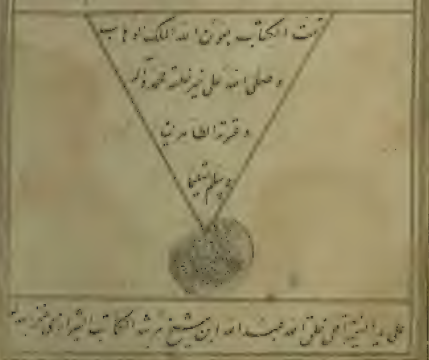 تمت الكتاب بعون الله الملك الوهاب
وصلى الله على خير خلقه محمد وآله
وعترته الطاهرين
وسلم تسليما
على يد الفقير احقر خلق الله عبد الله ابن شيخ مرشد الكاتب الشيرازي غفر